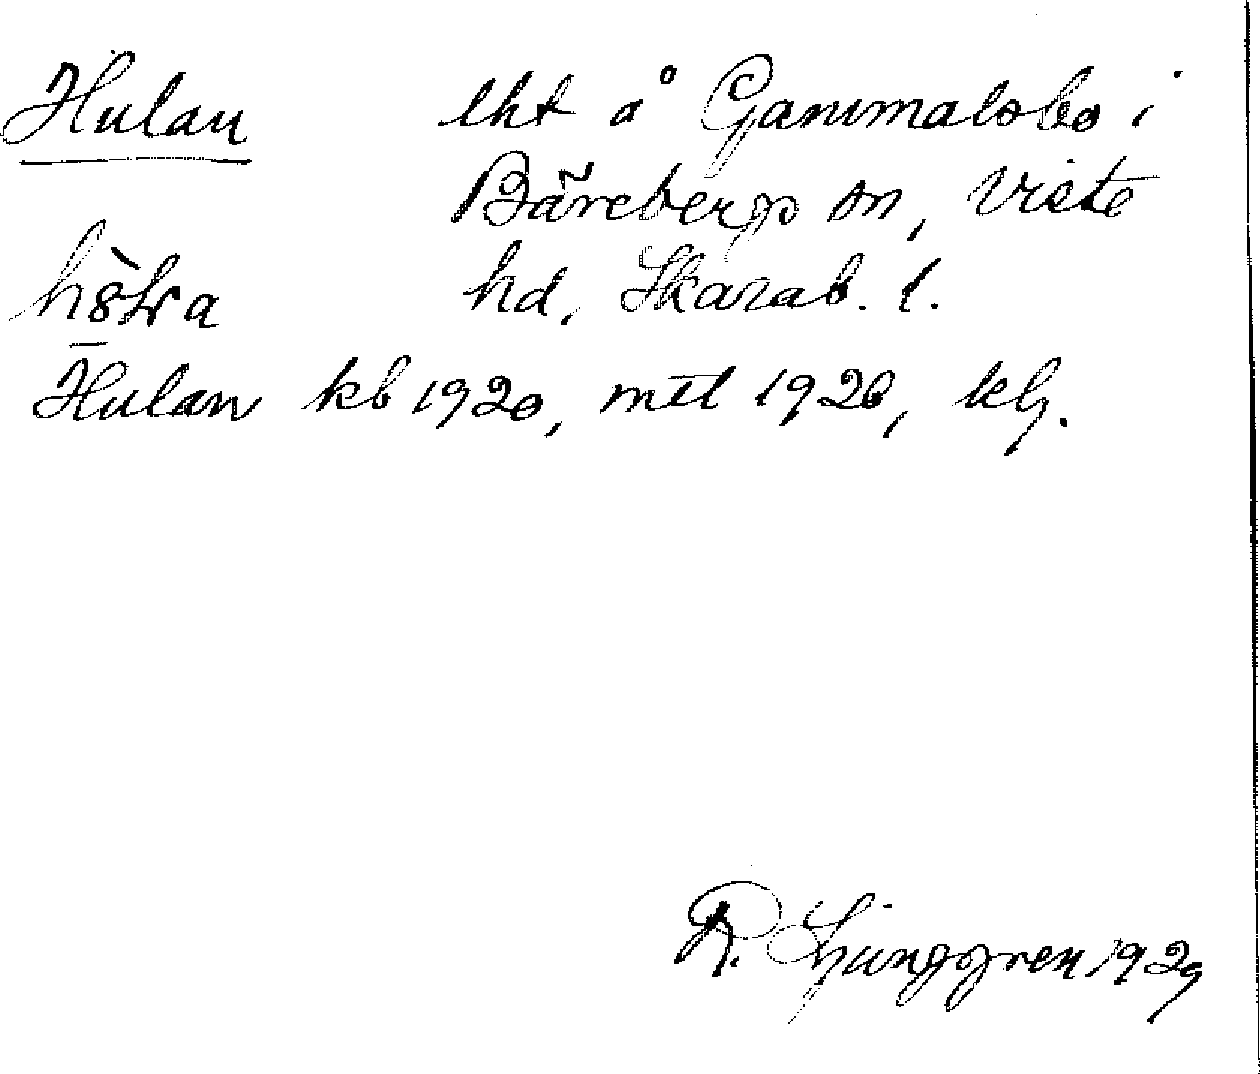 Hulan lht å Gammalsbo i
Bärebergs sn, Viste
hd, Skarab. l.
Hulan kb 1920, mtl 1920, klg.
R. Ljunggren 1929